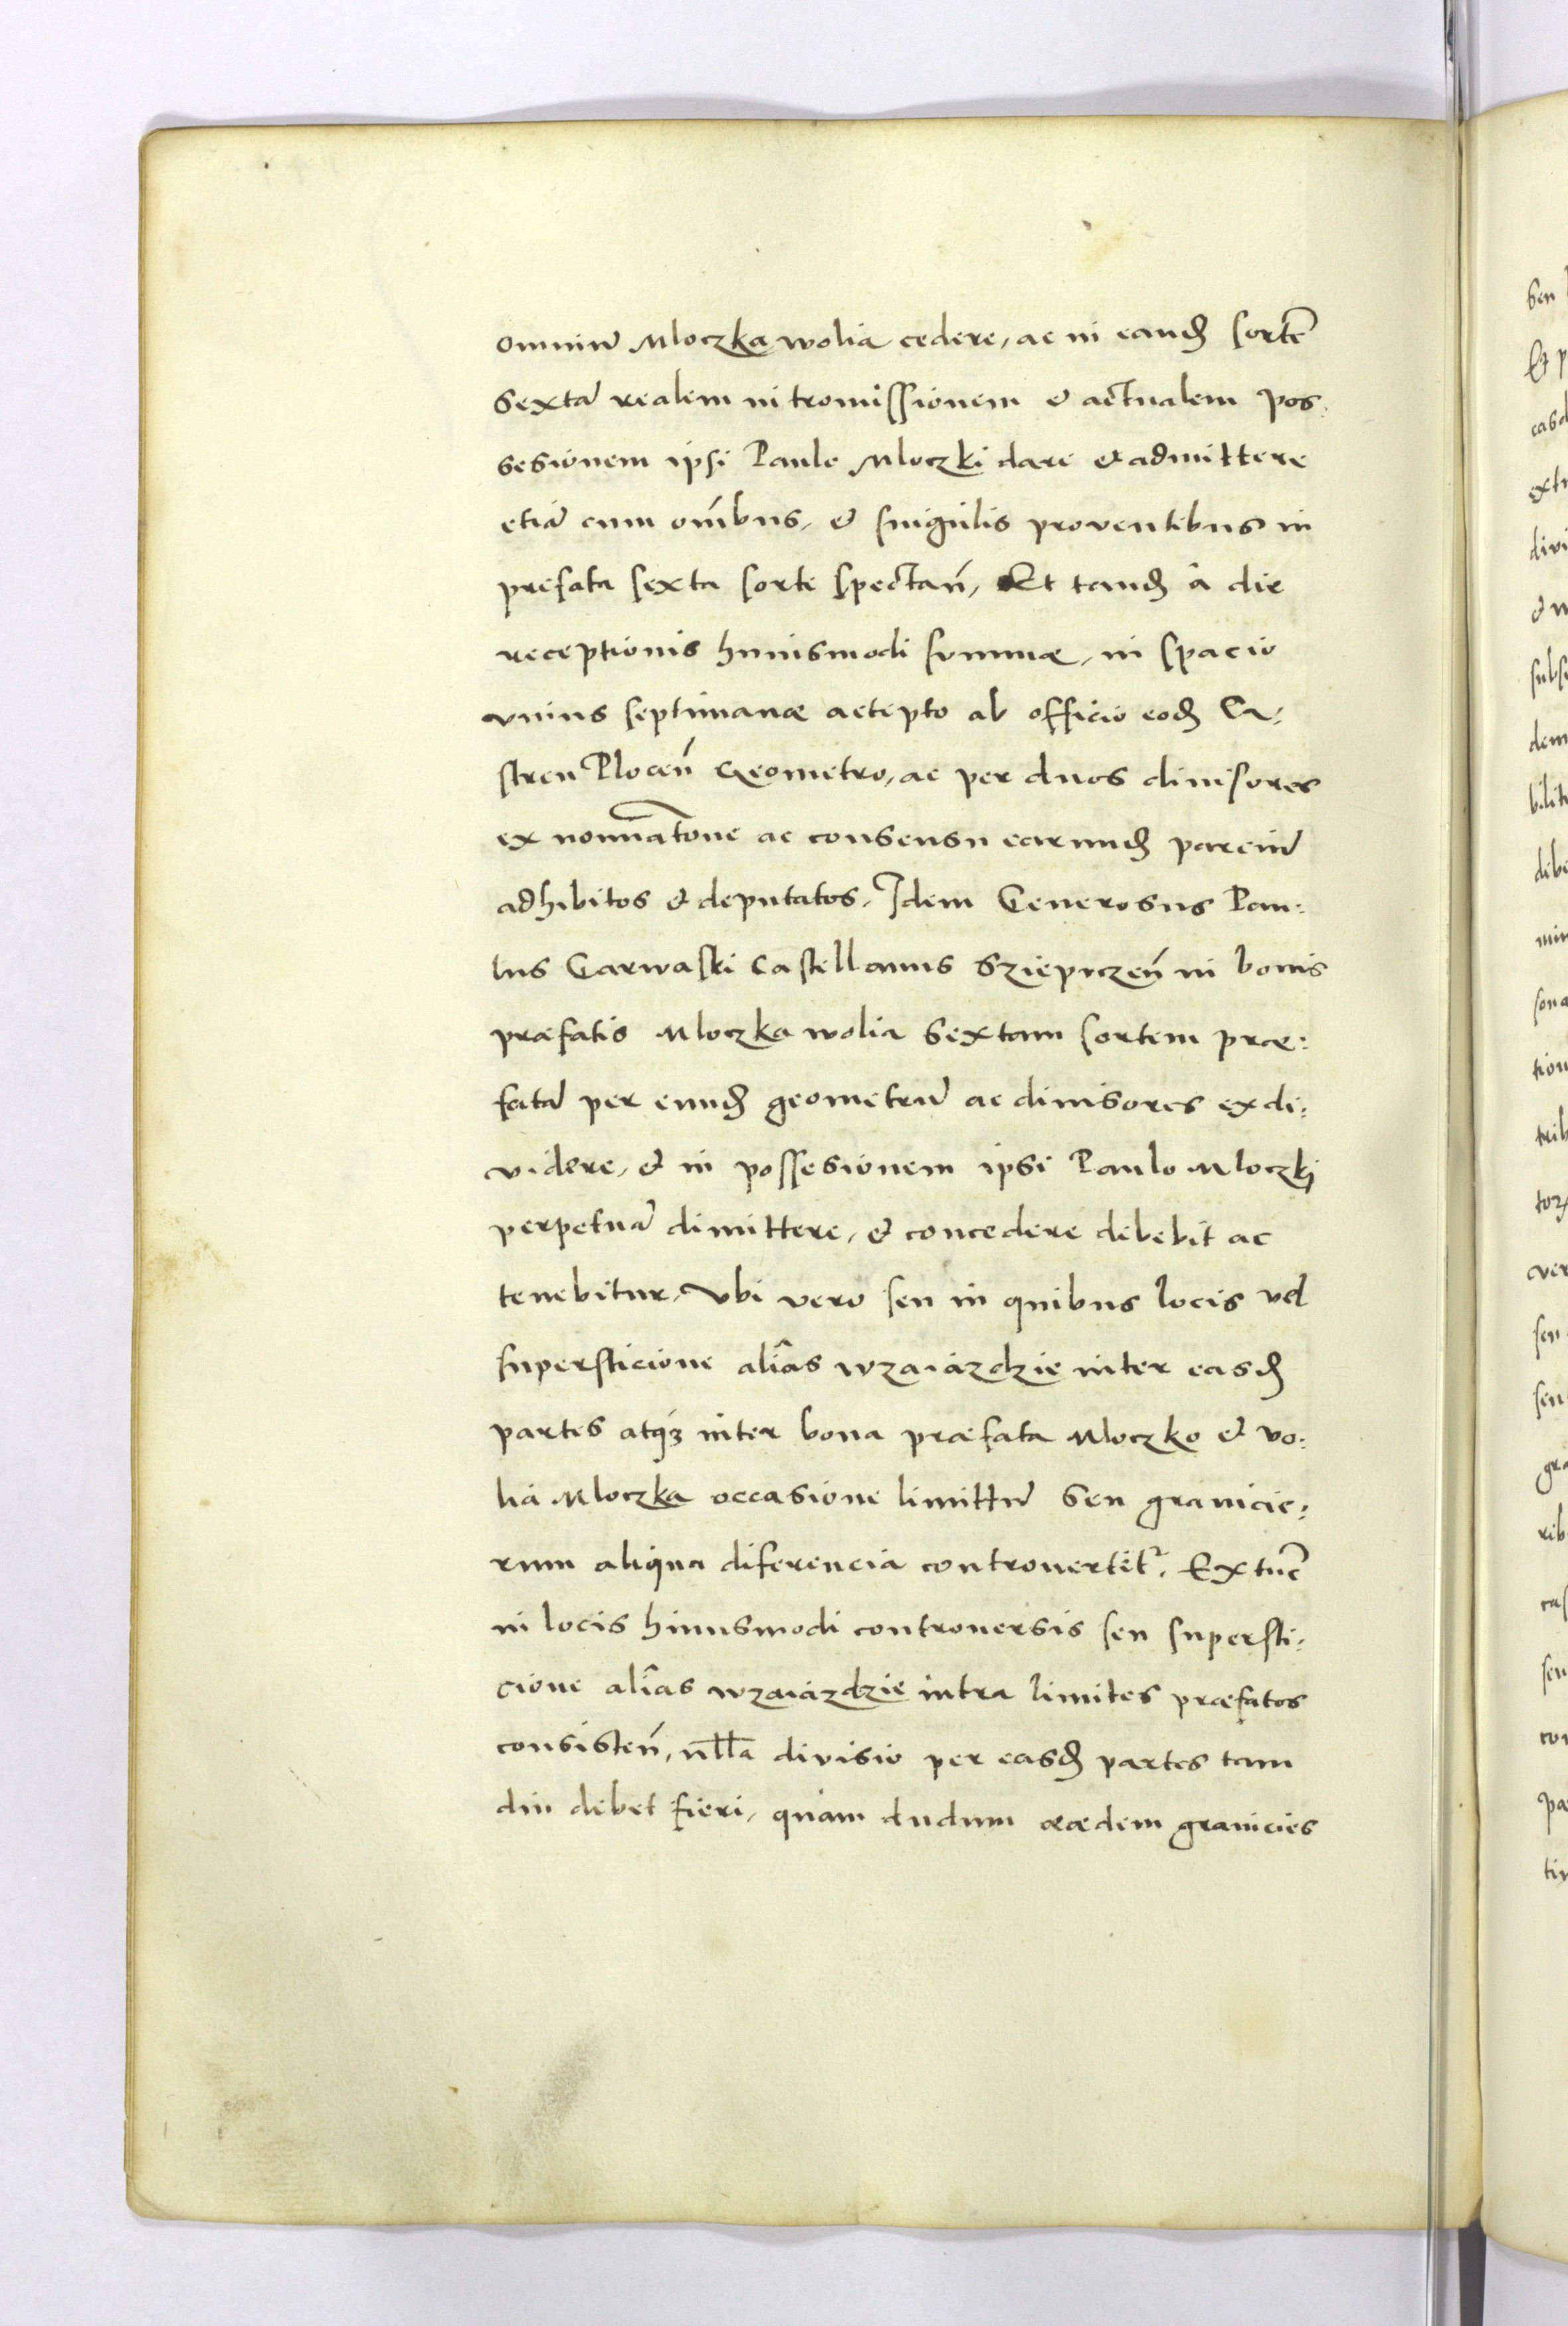 omniu᷈ Mloczka wolia cedere, ac in eandẜ sorte᷈
sexta᷈ realem intromissionem & actualem pos:
sesionem ipsi Paulo Mloczki dare et admittere
etia᷈ cum om᷈ibus, & singulis proventibus in
prefata sexta sorte spectan᷈, Et tandẜ â die
receptionis huiusmodi summæ, in spacio
vnius septimanæ accepto ab officio eodẜ Ca:
stren Plocen᷈ Geometro, ac per duos diuisores
ex nomina᷈tone ac consensu earundẜ parciu᷈
adhibitos & deputatos, Idem Generosus Pau:
lus Garwaski Castellanus Szieprczen᷈ in bonis
præfatis Mloczka wolia sextam sortem præ:
fata᷈ per eundẜ geometru᷈ ac diuisores exdi:
videre, & in possesionem ipsi Paulo Mloczki
perpetua᷈ dimittere, & concedere debebit ac
tenebitur, Vbi vero seu in quibus locis vel
supersticione aliâs wzaiazdzie inter easdẜ
partes atqꝫ inter bona præfata Mloczko & vo:
lia Mloczka occasione limittu᷈ seu granicie:
rum aliqua diferencia controuertit᷈, Ex tu᷈c
in locis huiusmodi controuersis seu supersti:
cione aliâs wzaiazdzie intra limites præfatos
consisten᷈, nll᷈a divisio per easdẜ partes tam
diu debet fieri, quam dudum eædem granicies